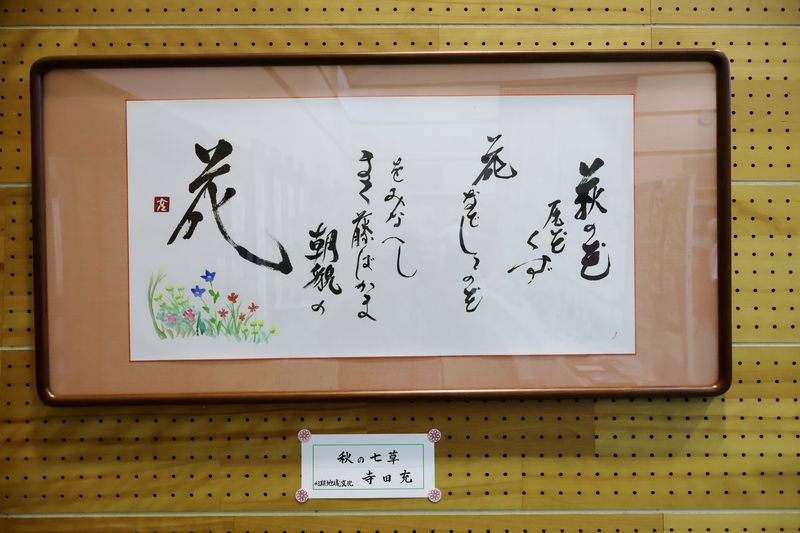 萩の花
尾花
くず
花
なでしこの花
をみなへし
また藤ばかま
朝貌の
花
秋の七草
寺田充